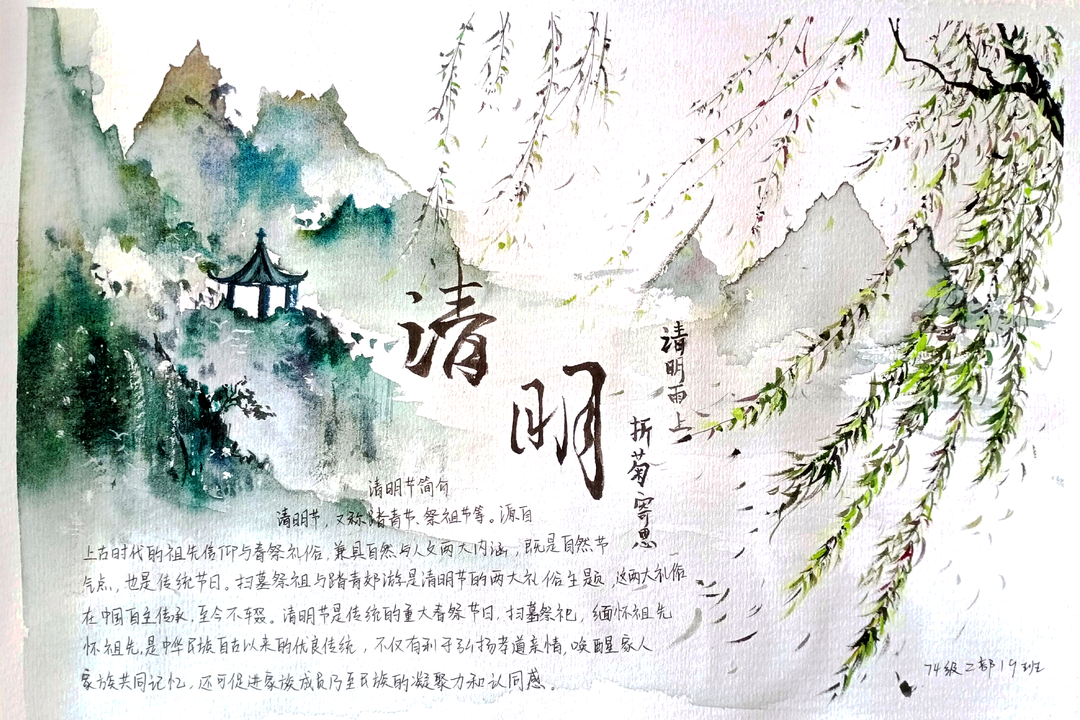 清明
清明雨上
折菊寄思
清明节简介
清明节，又称踏青节、祭祖节等。源自
上古时代的祖先信仰与春祭礼俗，兼具自然与人文两大内涵，既是自然节
气点，也是传统节日。扫墓祭祖与踏青郊游是清明节的两大礼俗主题，这两大礼俗
在中国自古传承，至今不辍。清明节是传统的重大春祭节日，扫墓祭祀，缅怀祖先
怀祖先，是中华民族自古以来的优良传统，不仅有利于弘扬孝道亲情，唤醒家人
家族共同记忆，还可促进家族成员乃至民族的凝聚力和认同感。
74级2部19班